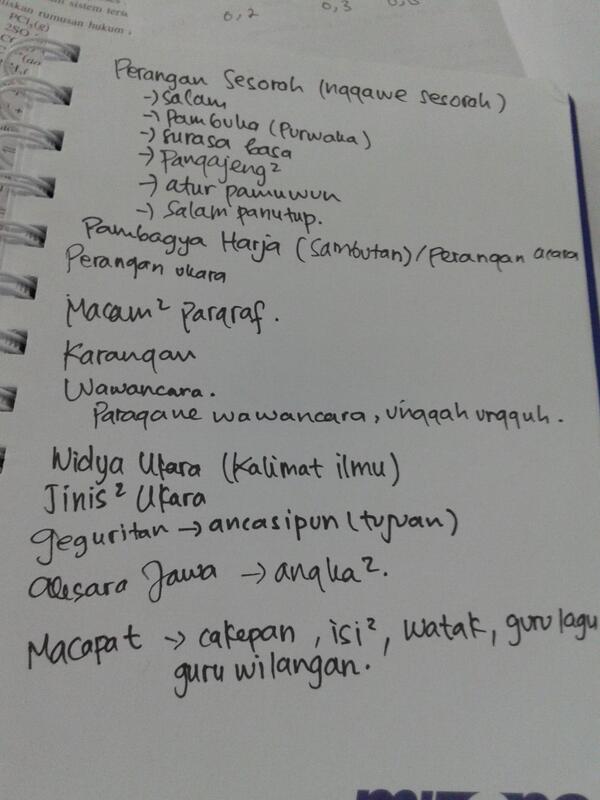 n sistem ters
liskan rumusan hukum
PCl₅(g)
2SO
0,2
0,3
Perangan Sesoroh (nggawe sesoroh)
-> salam
-> Pambuka (Purwaka)
-> surasa basa
-> Pangajeng²
-> atur pamuwun
-> Salam panutup.
Pambagya Harja (Sambutan)/Perangan acara
Perangan ukara
Macam² Pararaf.
Karangan
Wawancara.
Paragane wawancara, unggah ungguh.
Widya Ukara (Kalimat ilmu)
Jinis² Ukara
geguritan -> ancasipun (tujuan)
aksara Jawa -> angka².
Macapat -> cakepan, isi², watak, guru lagu
guru wilangan.